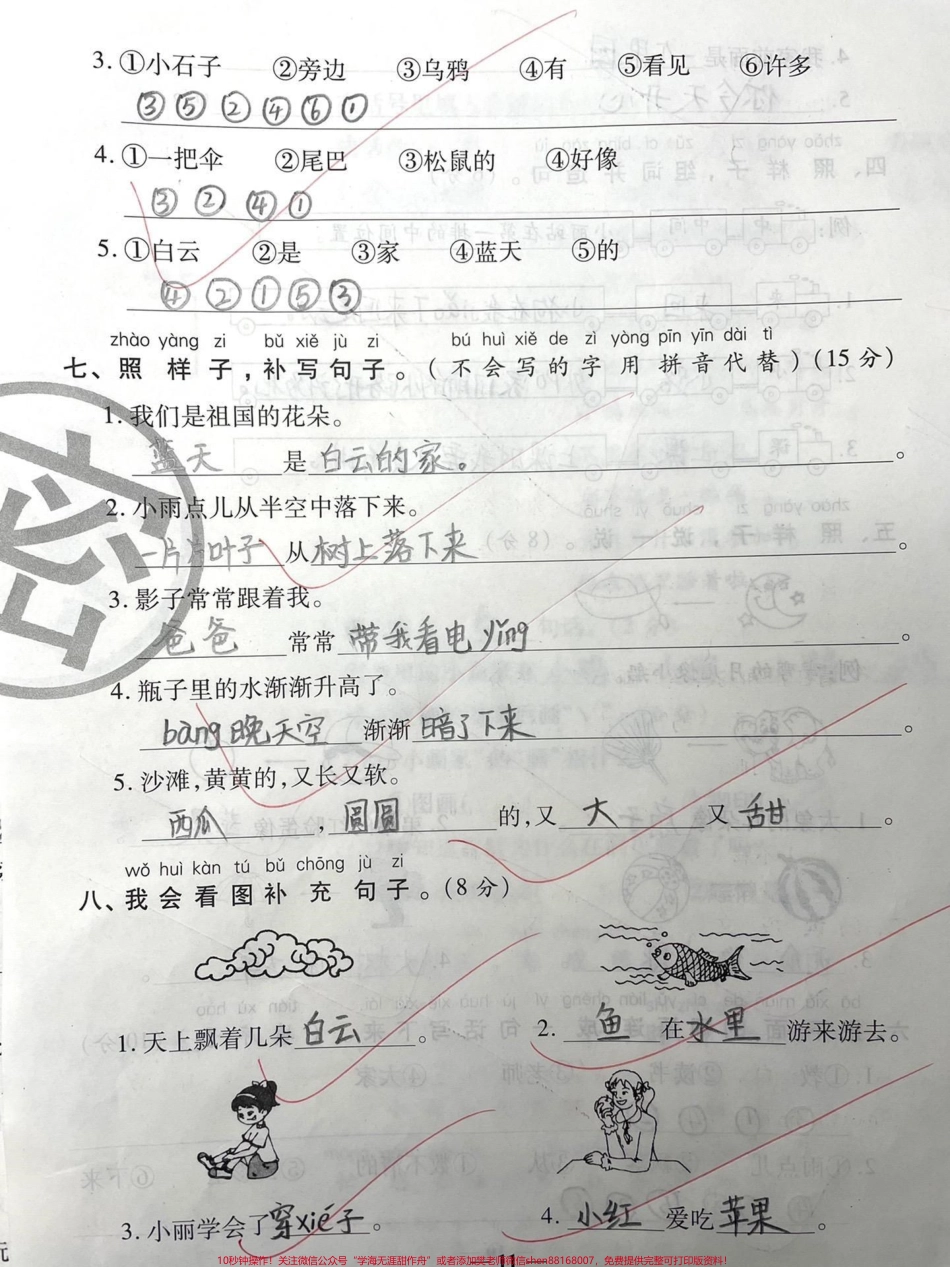 3. ①小石子 ②旁边 ③乌鸦 ④有 ⑤看见 ⑥许多
③ ⑤ ② ④ ⑥ ①
4. ①一把伞 ②尾巴 ③松鼠的 ④好像
③ ② ④ ①
5. ①白云 ②是 ③家 ④蓝天 ⑤的
④ ② ① ⑤ ③
zhào yàng zi bǔ xiě jù zi bú huì xiě de zì yòng pīn yīn dài tì
七、照样子,补写句子。(不会写的字用拼音代替)(15分)
1. 我们是祖国的花朵。
蓝天 是 白云的家。 。
2. 小雨点儿从半空中落下来。
一片片叶子 从 树上落下来 。
3. 影子常常跟着我。
爸爸 常常 带我看电yǐng 。
4. 瓶子里的水渐渐升高了。
bàng晚天空 渐渐 暗了下来 。
5. 沙滩,黄黄的,又长又软。
西瓜 , 圆圆 的,又 大 又 甜 。
wǒ huì kàn tú bǔ chōng jù zi
八、我会看图补充句子。(8分)
1. 天上飘着几朵 白云 。
2. 鱼 在 水里 游来游去。
3. 小丽学会了 穿xié子 。
4. 小红 爱吃 苹果 。
11
10秒钟操作!关注微信公众号“学海无涯甜作舟”或者添加吴老师微信shen88168007,免费提供完整可打印版资料!